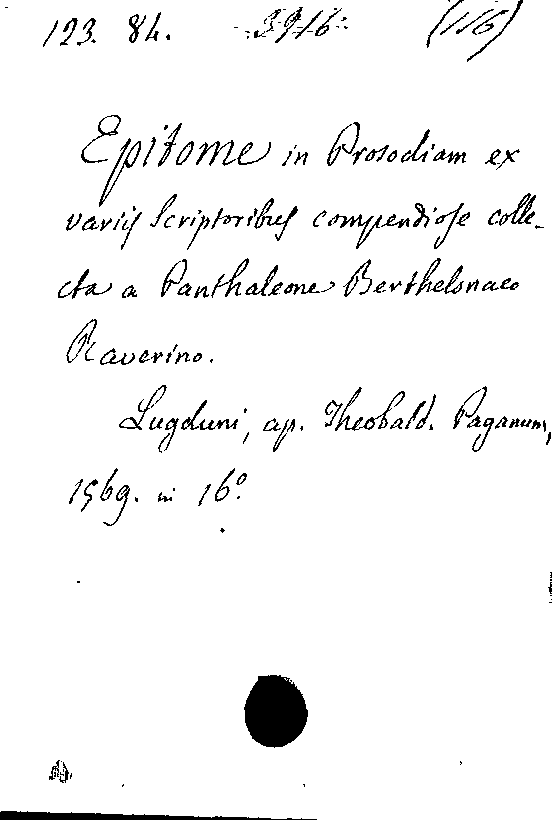 123. 84. 3916. (116)
Epitome in Prosodiam ex
variis Scriptoribus compendiose colle-
cta a Panthaleone Berthelonaeo
Raverino.
Lugduni, ap. Theobald. Paganum,
1569. in 16º.